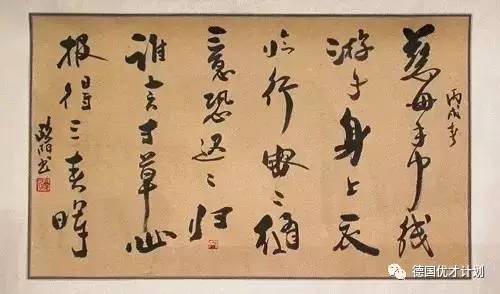 丙戌春
慈母手中线
游子身上衣
临行密々缝
意恐迟々归
谁言寸草心
报得三春晖
德国优才计划